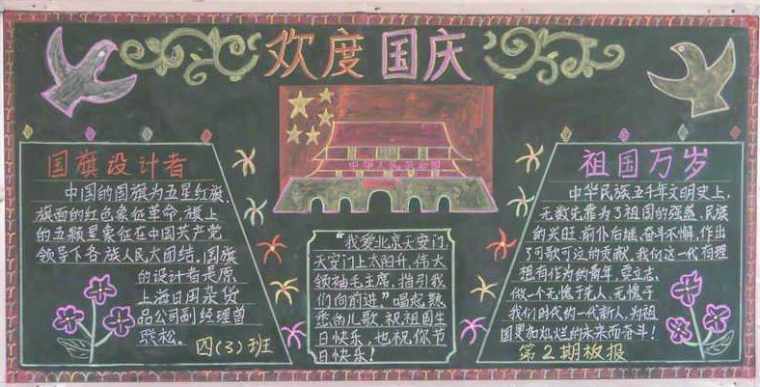 欢度国庆
国旗设计者
中国的国旗为五星红旗,
旗面的红色象征革命,旗上
的五颗星象征在中国共产党
领导下各族人民大团结.国旗
的设计者是原
上海日用杂货
品公司副经理曾
联松。
四(3)班
中华人民共和国
"我爱北京天安门,
天安门上太阳升,伟大
领袖毛主席,指引我
们向前进."唱起熟
悉的儿歌,祝祖国生
日快乐,也祝你节
日快乐!
祖国万岁
中华民族五千年文明史上,
无数先辈为了祖国的强盛,民族
的兴旺,前仆后继,奋斗不懈,作出
了可歌可泣的贡献,我们这一代有理
想有作为的青年,要立志,
做一个无愧于先人,无愧于
我们时代的一代新人,为祖
国更加灿烂的未来而奋斗!
第2期板报